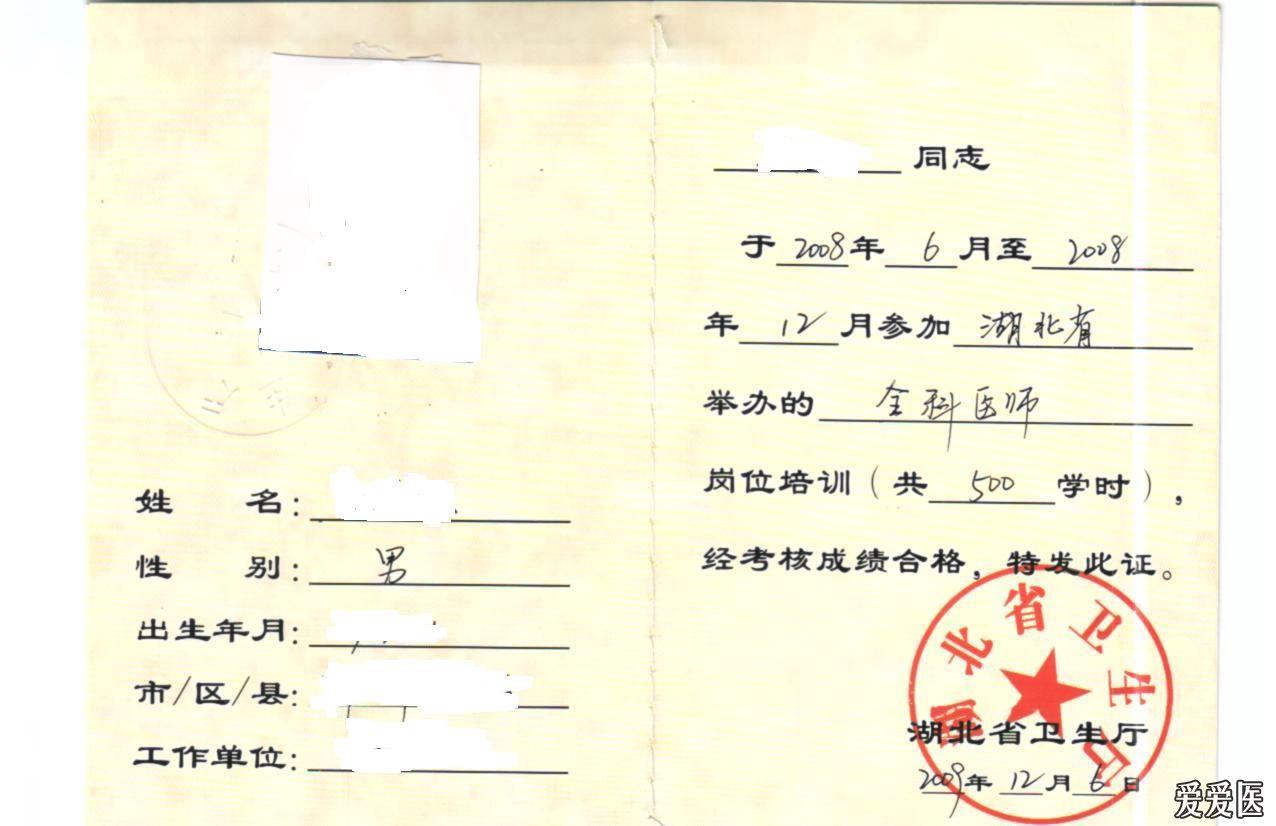 姓 名：
性 别：男
出生年月：
市/区/县：
工作单位：
同志
于2008年6月至2008
年12月参加湖北省
举办的全科医师
岗位培训（共500学时），
经考核成绩合格，特发此证。
湖北省卫生厅
湖北省卫生厅
2009年12月6日
爱爱医